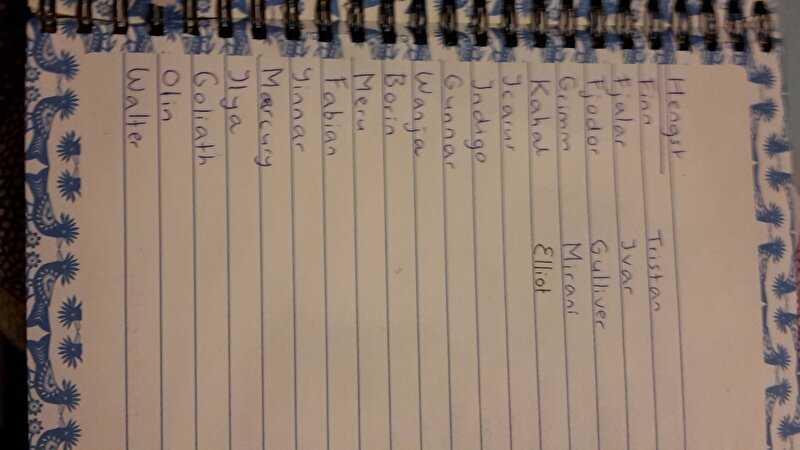 Hengst
Finn Tristan
Fjalar Ivar
Fjodor Gulliver
Grimm Mirani
Kahal Elliot
Icarus
Indigo
Gunnar
Wanja
Borin
Meru
Fabian
Yinnar
Mercury
Ilya
Goliath
Olin
Walter